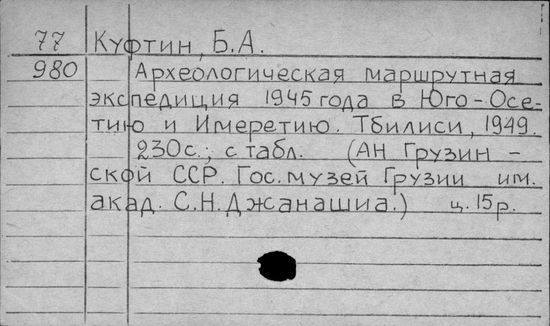 77 Куфтин, Б.А.
980 Археологическая маршрутная
экспедиция 1945 года в Юго-Осе-
тию и Имеретию. Тбилиси, 1949.
230с.; с табл. (АН Грузин-
ской ССР. Гос. музей Грузии им.
акад. С.Н. Джанашиа.) ц. 15р.